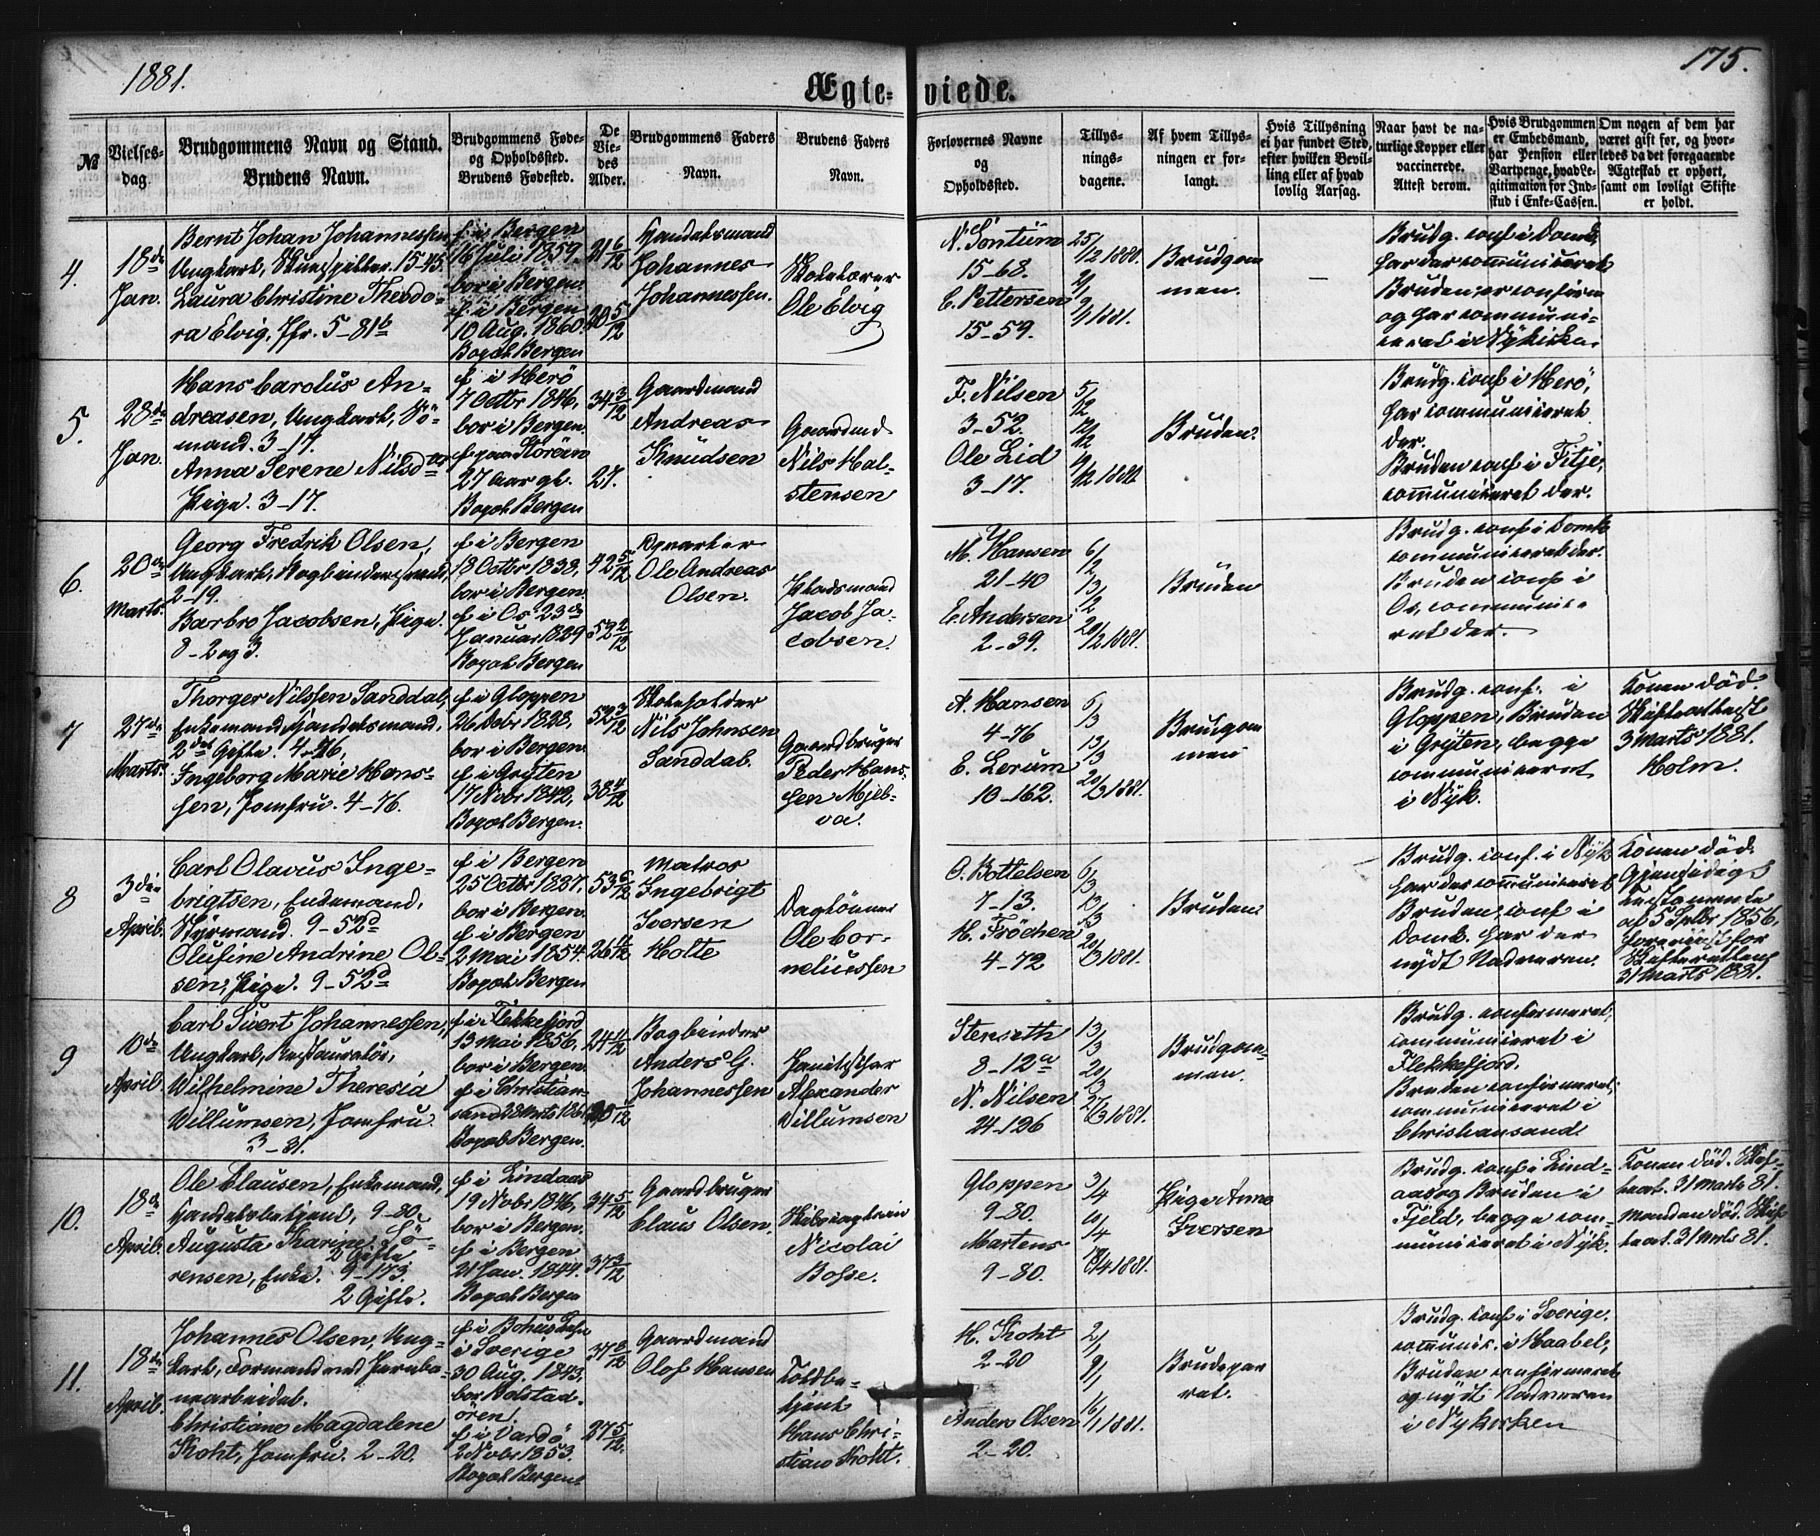 1881.
175.
Ægteviede.
№
Vielses-
dag.
Brudgommens Navn og Stand.
Brudens Navn.
Brudgommens Føde-
og Opholdssted.
Brudens Fødested.
De
Vie-
des
Alder.
Brudgommens Faders
Navn.
Brudens Faders
Navn.
Forlovernes Navne
og
Opholdssted.
Tillys-
nings-
dagene.
Af hvem Tillys-
ningen er for-
langt.
Hvis Tillysning
ei har fundet Sted,
efter hvilken Bevil-
ling eller af hvad
lovlig Aarsag.
Naar havt de na-
turlige Kopper eller
vaccinerede.
Attest derom.
Hvis Brudgommen
er Embedsmand,
har Pension eller
Vartpenge, hvad Le-
gitimation for Ind-
skud i Enke-Cassen.
Om nogen af dem har
været gift før, og hvor-
ledes da det foregaaende
Ægteskab er ophørt,
samt om lovligt Skifte
er holdt.
4.
18de
Jan.
Bernt Johan Johannessen
Ungkarl, Skuespiller. 15-45.
Laura Christine Theodo-
ra Elvig, Jfr. 5-81b
f. i Bergen
16 Juli 1859.
bor i Bergen.
f. i Bergen
10 Aug. 1860.
Bopæl Bergen
21 6/12
20 5/12
Handelsmand
Johannes
Johannessen.
Skolelærer
Ole Elvig
N. Sontum
15-68.
C. Pettersen
15-59.
25/12 1880.
2/1
9/1 1881.
Brudgom
men.
Brudg. conf. i Domk,
har der communiceret
Bruden er confirm
og har communi-
ceret i Nykirken.
5.
28de
Jan.
Hans Carolus An-
dreasen, Ungkarl, Sö-
mand. 3-17.
Anna Serene Nilsdr
Pige. 3-17.
f. i Herö
7 Octbr 1846,
bor i Bergen.
f. paa Storöen
27 Aar gl.
Bopæl Bergen
34 3/12
27.
Gaardmand
Andreas
Knudsen
Gaardmd
Nils Hal-
stensen
F. Nilsen
3-52.
Ole Lid
3-17.
5/12
12/12
Bruden.
Brudg. conf. i Herö,
har communiceret
der.
Bruden conf. i Fitje,
communiceret der.
6.
20de
Marts.
Georg Fredrik Olsen,
Ungkarl, Bogbindersvend,
2-19.
Barbro Jacobsen, Pige.
8-2 og 3.
f. i Bergen
18 Octbr 1838,
bor i Bergen.
f. i Os 23de
Januar 1829
Bopæl Bergen
42 5/12
52 2/12
Ole Andreas
Olsen.
Pladsmand
Jacob Ja-
cobsen.
M. Hansen
21-40
E. Andersen
2-39.
6/2
13/2
20/2 1881.
Bruden
Brudg. conf. i Domk
communiceret der.
Bruden conf. i
Os, communice-
ret der.
7
27de
Marts.
Thorger Nilssen Sanddal,
Enkemand, Handelsmand,
2det Gifte. 4-76.
Ingeborg Marie Hans-
sen, Jomfru. 4-76.
f. i Gloppen
26 Decbr 1828,
bor i Bergen.
f. i Gryten
17 Novbr 1842,
Bopæl Bergen.
52 3/12
38 4/12
Skoleholder
Nils Johnsen
Sanddal.
Gaardbruger
Peder Hans-
sen Mjel-
va.
A. Hansen
4-76
E. Lerum
10-162.
6/3
13/3
20/3 1881.
Brudgom
men
Brudg. conf. i
Gloppen, Bruden
i Gryten, begge
communiceret
i Nyk.
Konen död.
Skifteattest
3 Marts 1881.
Holm.
8
3die
April.
Carl Olavus Inge-
brigtsen, Enkemand,
Styrmand. 9-52d
Olufine Andrine Ol-
sen, Pige. 9-52d
f. i Bergen
25 Octbr 1827.
bor i Bergen.
f. i Bergen
2 Mai 1854.
Bopæl Bergen
53 6/12
26 11/12
Matros
Ingebrigt
Iversen
Holte
Daglönner
Ole Cor-
neliussen
O. Bottelsen
7-13.
H. Fröchen
4-72
6/3
13/3
20/3 1881.
Bruden.
Brudg. conf. i Nyk
har der communiceret
Bruden conf. i
Domk. har der
nydt Nadveren.
Konen död.
Gjensidigt
Testamente
af 5 Febr 1856,
forevist for
Skifteretten
31 Marts 1881.
9
10de
April.
Carl Sivert Johannessen,
Ungkarl, Restauratör,
Wilhelmine Theresia
Willumsen, Jomfru.
3-81.
f. i Flekkefjord
13 Mai 1856,
bor i Bergen.
f. i Christian-
Bopæl Bergen.
24 11/12
Bogbinder
Anders G.
Johannessen
Alexander
Willumsen
Stenseth
8-12a
N. Nilsen
24-126
13/3
20/3
27/3 1881.
Brudgom-
men.
Brudg. confirmeret,
communiceret i
Flekkefjord.
Bruden confirmeret,
communiceret i
Christiansand.
10.
18de
April.
Ole Clausen, Enkemand,
Handelsbetjent, 9-80.
2 Gifte
Augusta Tharine Sö-
rensen, Enke. 9-173.
2 Gifte.
f. i Lindaas
19 Novbr 1846,
bor i Bergen.
f. i Bergen
21 Jan. 1844.
Bopæl Bergen
34 5/12
37 3/12
Gaardbruger
Claus Olsen.
Skibscaptein
Nicolai
Bosse.
Gloppen
9-80.
Martens
9-80.
3/4
10/4
Pige Anna
Iversen
Brudg. conf. i Lind-
aas og Bruden i
Fjeld, begge com-
municeret i Nyk.
Konen död. Skif-
teat. 31 Marts 81.
Manden död. Skif
teat. 31 Marts 81.
11.
18de
April.
Johannes Olsen, Ung-
karl, Formand ved Jernba-
nearbeidet.
Christiane Magdalene
Koht, Jomfru. 2-20.
f. i Bohus Lehn
i Sverige
30 Aug. 1843.
bor Solstad-
ören.
f. i Vardö
2 Novbr 1853.
Bopæl Bergen.
37 8/12
27 5/12
Gaardmand
Olof Hansen
Toldbe-
tjent
Hans Chri-
stian Koht.
H. Koht
2-20
Anders Olsen
2-20.
2/1
9/1
16/1 1881.
Brudepar
ret.
Brudg. conf. i Sverige,
communic. i Haabel,
Bruden confirmeret
og nydt Nadveren
i Nykirken